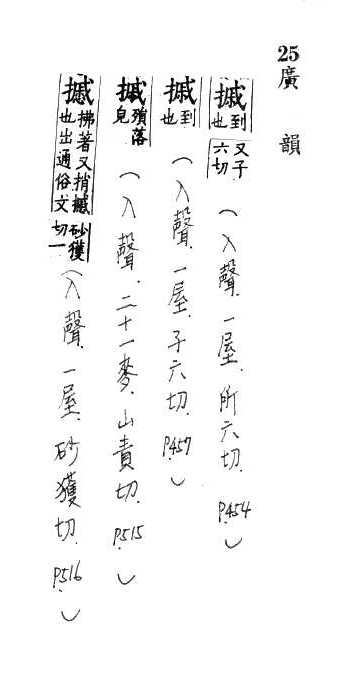 25廣韻
摵到也又子六切(入聲.一屋.所六切.P.454)
摵到也(入聲.一屋.子六切.P.457)
摵殞落皃(入聲.二十一麥.山責切.P.515)
摵拂著又捎摵也出通俗文砂獲切一(入聲.一屋.砂獲切.P.516)